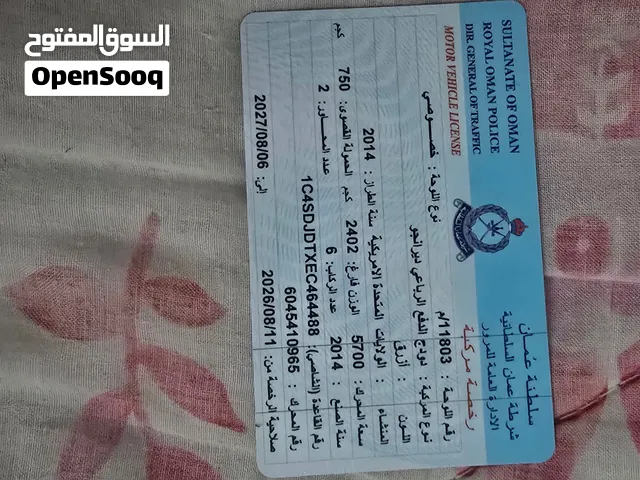 السوق المفتوح
OpenSooq
SULTANATE OF OMAN
ROYAL OMAN POLICE
DIR. GENERAL OF TRAFFIC
MOTOR VEHICLE LICENSE
سلطنة عمان
شرطة عمان السلطانية
الادارة العامة للمرور
رخصة مركبة
رقم اللوحة : 11803/م نوع اللوحة : خصـوصي
نوع المركبة : دودج الدفع الرباعي ديرانجو
اللون : أزرق
المنشاء : الولايات المتحدة الامريكية سنة الطراز : 2014
سعة المحرك : 5700 الوزن فارغ : 2402 كجم الحمولة القصوى : 750 كجم
سنة الصنع : 2014 عدد الركاب : 6 عدد المحـاور : 2
رقم القاعدة (الشاصي) : 1C4SDJDTXEC464488
رقم المحرك : 6045410965
صلاحية الرخصة من : 2026/08/11 إلى : 2027/08/06